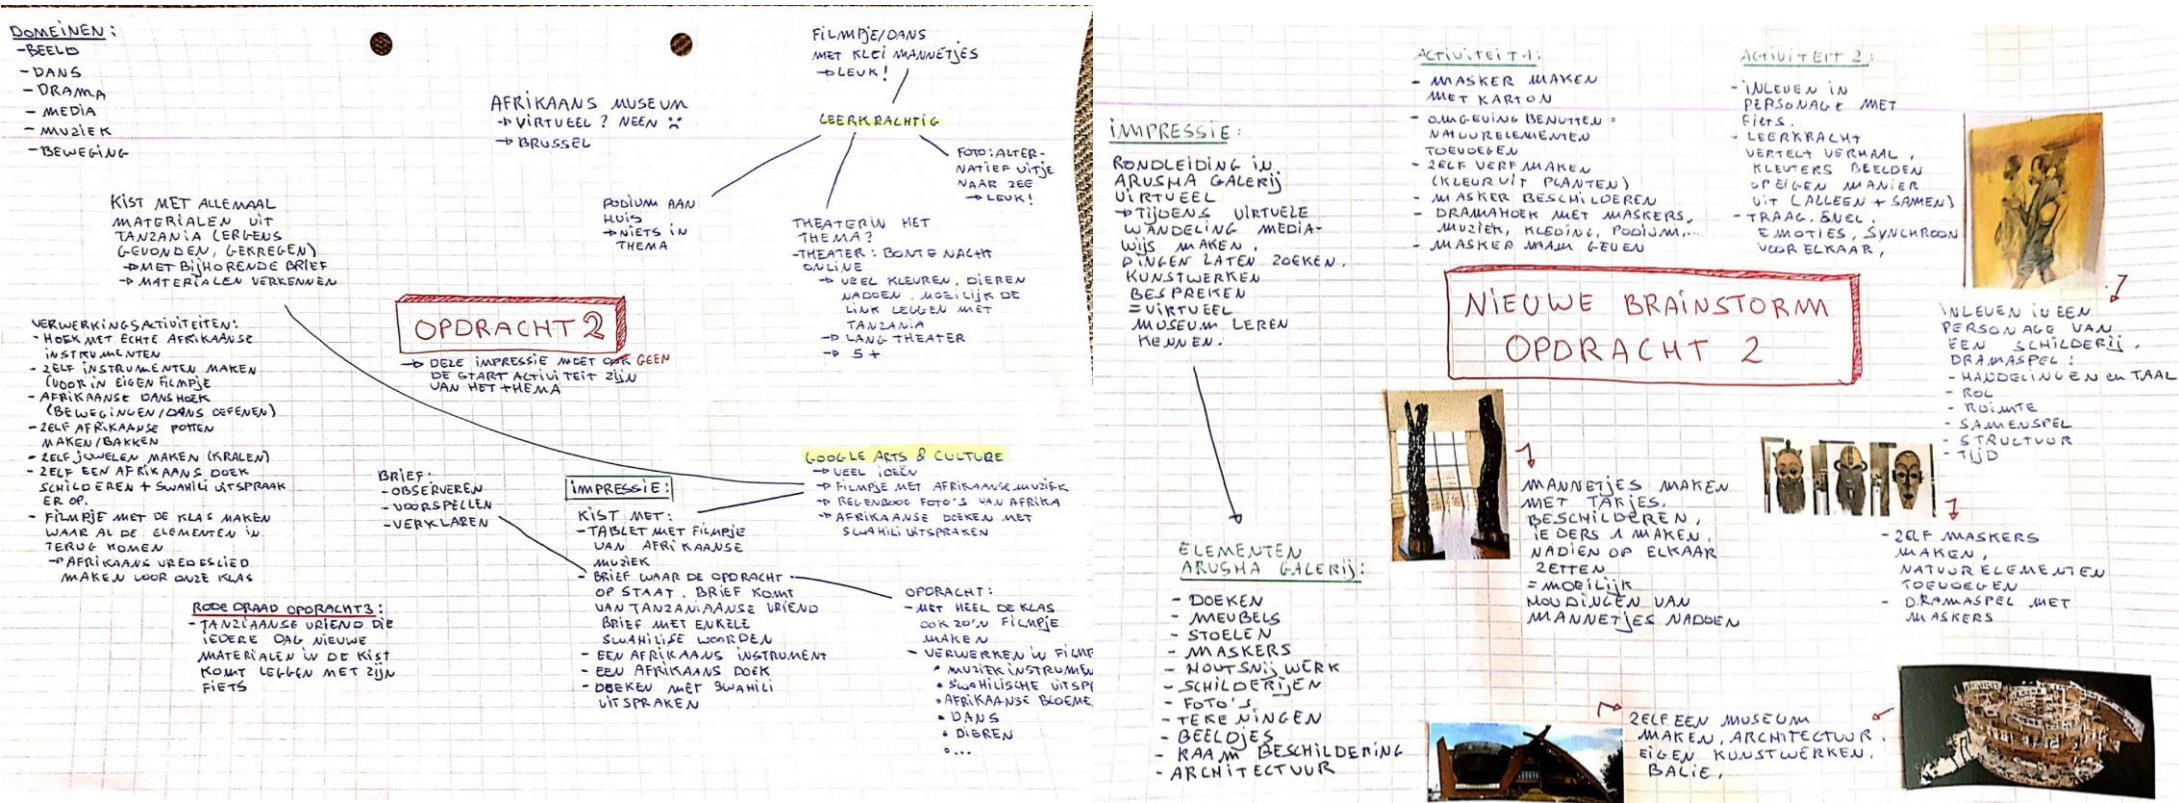 DOMEINEN:
- BEELD
- DANS
- DRAMA
- MEDIA
- MUZIEK
- BEWEGING
AFRIKAANS MUSEUM
→ VIRTUEEL? NEEN :(
→ BRUSSEL
FILMPJE/DANS
MET KLEI MANNETJES
→ LEUK!
LEERKRACHTIG
FOTO: ALTER-
NATIEF UITJE
NAAR ZEE
→ LEUK!
PODIUM AAN
HUIS
→ NIETS IN
THEMA
THEATER IN HET
THEMA?
- THEATER: BONTE NACHT
ONLINE
→ VEEL KLEUREN, DIEREN
NADOEN, MOEILIJK DE
LINK LEGGEN MET
TANZANIA
→ LANG THEATER
→ 5+
KIST MET ALLEMAAL
MATERIALEN UIT
TANZANIA (ERGENS
GEVONDEN, GEKREGEN)
→ MET BIJHORENDE BRIEF
→ MATERIALEN VERKENNEN
OPDRACHT 2
→ DEZE IMPRESSIE MOET GEEN
DE START ACTIVITEIT ZIJN
VAN HET THEMA
VERWERKINGSACTIVITEITEN:
- HOEK MET ECHTE AFRIKAANSE
INSTRUMENTEN
- ZELF INSTRUMENTEN MAKEN
(VOOR IN EIGEN FILMPJE
- AFRIKAANSE DANSHOEK
(BEWEGINGEN/DANS OEFENEN)
- ZELF AFRIKAANSE POTTEN
MAKEN/BAKKEN
- ZELF JUWELEN MAKEN (KRALEN)
- ZELF EEN AFRIKAANS DOEK
SCHILDEREN + SWAHILI UITSPRAAK
ER OP.
- FILMPJE MET DE KLAS MAKEN
WAAR AL DE ELEMENTEN IN
TERUG KOMEN
→ AFRIKAANS VREDESLIED
MAKEN VOOR ONZE KLAS
RODE DRAAD OPDRACHT 3:
- TANZIAANSE VRIEND DIE
IEDERE DAG NIEUWE
MATERIALEN IN DE KIST
KOMT LEGGEN MET ZIJN
FIETS
BRIEF:
- OBSERVEREN
- VOORSPELLEN
- VERKLAREN
IMPRESSIE:
KIST MET:
- TABLET MET FILMPJE
VAN AFRIKAANSE
MUZIEK
- BRIEF WAAR DE OPDRACHT
OP STAAT. BRIEF KOMT
VAN TANZANIAANSE VRIEND
BRIEF MET ENKELE
SWAHILISE WOORDEN
- EEN AFRIKAANS INSTRUMENT
- EEN AFRIKAANS DOEK
- DOEKEN MET SWAHILI
UITSPRAKEN
GOOGLE ARTS & CULTURE
→ VEEL IDEEËN
→ FILMPJE MET AFRIKAANSE MUZIEK
→ REGENBOOG FOTO'S VAN AFRIKA
→ AFRIKAANSE DOEKEN MET
SWAHILI UITSPRAKEN
OPDRACHT:
- MET HEEL DE KLAS
OOK ZO'N FILMPJE
MAKEN
- VERWERKEN IN FILMP
• MUZIEKINSTRUMEN
• SWAHILISCHE UITSPR
• AFRIKAANSE BLOEME
• DANS
• DIEREN
• ...
IMPRESSIE:
RONDLEIDING IN
ARUSHA GALERIJ
VIRTUEEL
→ TIJDENS VIRTUELE
WANDELING MEDIA-
WIJS MAKEN,
DINGEN LATEN ZOEKEN.
KUNSTWERKEN
BESPREKEN
= VIRTUEEL
MUSEUM LEREN
KENNEN.
ELEMENTEN
ARUSHA GALERIJ:
- DOEKEN
- MEUBELS
- STOELEN
- MASKERS
- HOUTSNIJWERK
- SCHILDERIJEN
- FOTO'S
- TEKENINGEN
- BEELDJES
- RAAM BESCHILDERING
- ARCHITECTUUR
ACTIVITEIT 1:
- MASKER MAKEN
MET KARTON
- OMGEVING BENUTTEN =
NATUURELEMENTEN
TOEVOEGEN
- ZELF VERF MAKEN
(KLEUR UIT PLANTEN)
- MASKER BESCHILDEREN
- DRAMAHOEK MET MASKERS,
MUZIEK, KLEDING, PODIUM,...
- MASKER NAAM GEVEN
ACTIVITEIT 2:
- INLEVEN IN
PERSONAGE MET
FIETS.
- LEERKRACHT
VERTELT VERHAAL,
KLEUTERS BEELDEN
OP EIGEN MANIER
UIT (ALLEEN + SAMEN)
- TRAAG, SNEL,
EMOTIES, SYNCHROON
VOOR ELKAAR,
NIEUWE BRAINSTORM
OPDRACHT 2
INLEVEN IN EEN
PERSONAGE VAN
EEN SCHILDERIJ.
DRAMASPEL:
- HANDELINGEN en TAAL
- ROL
- RUIMTE
- SAMENSPEL
- STRUCTUUR
- TIJD
MANNETJES MAKEN
MET TAKJES.
BESCHILDEREN,
IEDERS 1 MAKEN.
NADIEN OP ELKAAR
ZETTEN
= MOEILIJK
HOUDINGEN VAN
MANNETJES NADOEN
- ZELF MASKERS
MAKEN,
NATUURELEMENTEN
TOEVOEGEN
- DRAMASPEL MET
MASKERS
ZELF EEN MUSEUM
MAKEN, ARCHITECTUUR.
EIGEN KUNSTWERKEN.
BALIE.